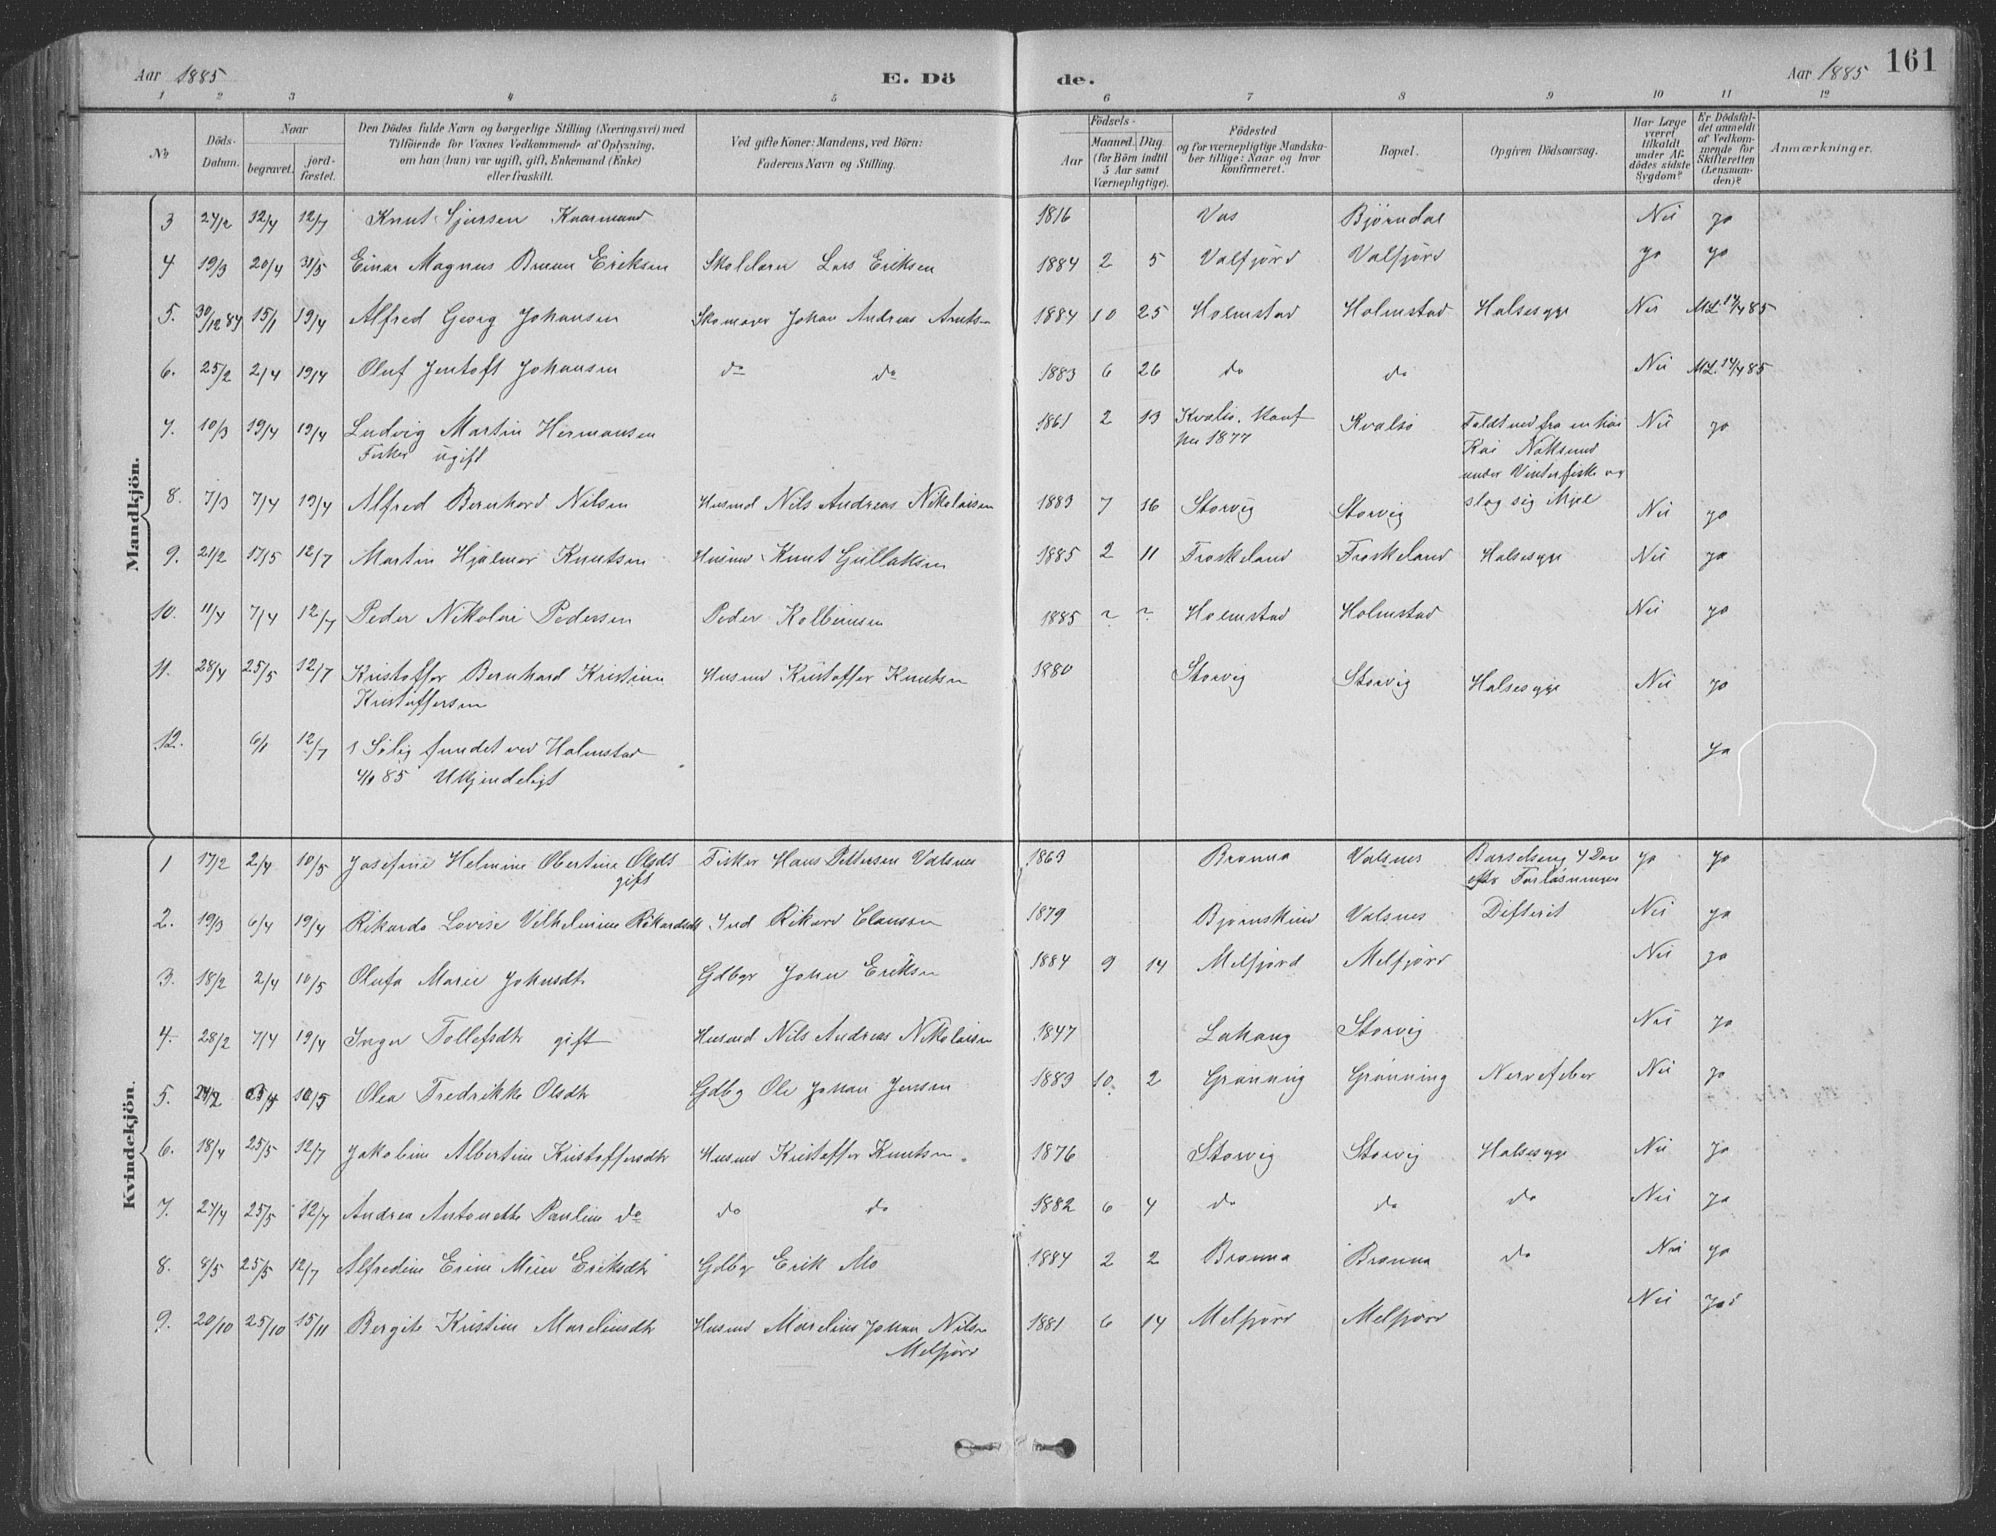 Aar 1885
E. Dö
de.
Aar 1885
161
1 2 3 4 5 6 7 8 9 10 11 12
No
Döds-Datum.
Naar
begravet.
jord-fæstet.
Den Dödes fulde Navn og borgerlige Stilling (Næringsvei) med
Tilföiende for Voxnes Vedkommende af Oplysning,
om han (hun) var ugift, gift, Enkemand (Enke)
eller fraskilt.
Ved gifte Koner: Mandens, ved Börn:
Faderens Navn og Stilling.
Födsels-
Aar
Maaned. Dag.
(for Börn indtil
5 Aar samt
Værnepligtige).
Födested
og for værnepligtige Mandska-
ber tillige: Naar og hvor
konfirmeret.
Bopæl.
Opgiven Dödsaarsag.
Har Læge
været
tilkaldt
under Af-
dödes sidste
Sygdom?
Er Dödsfal-
det anmeldt
af Vedkom-
mende for
Skifteretten
(Lensman-
den)?
Anmærkninger.
Mandkjön.
3 27/2 12/4 12/7 Knut Sjursen 1816 Vas Bjørndal Nei ja
4 19/3 20/4 31/5 Einar Magnus Bruun Eriksen Skolelærer Lars Eriksen 1884 2 5 Valfjord Valfjord ja ja
5. 30/12 84 15/1 19/4 Alfred Georg Johansen Skomager Johan Andreas Arntsen 1884 10 25 Holmstad Holmstad Halsesyge Nei ML. 17/4 85
6. 25/2 2/4 19/4 Oluf Jentoft Johansen do do 1883 6 26 do do Nei ML. 17/4 85
7. 10/3 19/4 19/4 Ludvig Martin Hermansen 1861 2 13 Kvalsø. Konf Kvalsø Faldt ned fra en høi Nei ja
Fisker ugift 1877 Kai
under Vinterfiske og
slog sig Ihjel
8. 7/3 7/4 19/4 Alfred Bernhard Nilsen Husmd Nils Andreas Nikolaisen 1883 7 16 Storvig Storvig Nei ja
9. 21/2 17/5 12/7 Martin Hjalmar Knutsen Husmd Knut Gullaksen 1885 2 11 Froskeland Froskeland Halsesyge Nei ja
10. 11/4 7/4 12/7 Peder Nikolai Pedersen Peder Kolbeinsen 1885 ~ ~ Holmstad Holmstad Nei ja
11. 28/4 25/5 12/7 Kristoffer Bernhard Kristian Husmd Kristoffer Knutsen 1880 Storvig Storvig Halsesyge Nei ja
Kristoffersen
12. 12/7 1 Sølig fundet ved Holmstad ja
85 Ukjendeligt
Kvindekjön.
1 17/2 2/4 10/5 Josefine Helmine Obertine Olsdt Fisker Hans Dittersen Valsnes 1863 Brænna Valsnes Barselseng 4 Dage ja ja
gift efter Forløsningen
2. 19/3 6/4 19/4 Rikarda Lovise Vilhelmine Rikardsdt Ind Rikard Clausen 1879 Bjørnskind Valsnes Difterit Nei ja
3. 18/2 2/4 10/5 Olufa Marie Johnsdt Gdbgr Johan Eriksen 1884 9 14 Melfjord Melfjord Nei ja
4. 28/2 7/4 19/4 Inger Tollefsdt gift Husmd Nils Andreas Nikolaisen 1847 Lakang Storvig Nei ja
5. 10/5 Olea Fredrikke Olsdt Gdbg Ole Johan Jensen 1883 10. 2 Grønning Grønning Nervefeber Nei ja
6. 18/4 25/5 12/7 Jakobine Albertine Kristoffersdt Husmd Kristoffer Knutsen. 1876 Storvig Storvig Halsesyge Nei ja
7. 27/4 25/5 12/7 Andrea Antonette Pauline do do do 1882 6 4 do do do Nei ja
8. 8/5 25/5 12/7 Alfredine Erine Meier Eriksdt Gdbgr Erik Mo 1884 2 2 Brænna Brænna do Nei ja
9. 20/10 25/10 15/11 Bergite Kristine Mareliusdt Husmd Marelius Johan Nilsen 1881 6 14 Melfjord Melfjord Nei ja
Melfjord